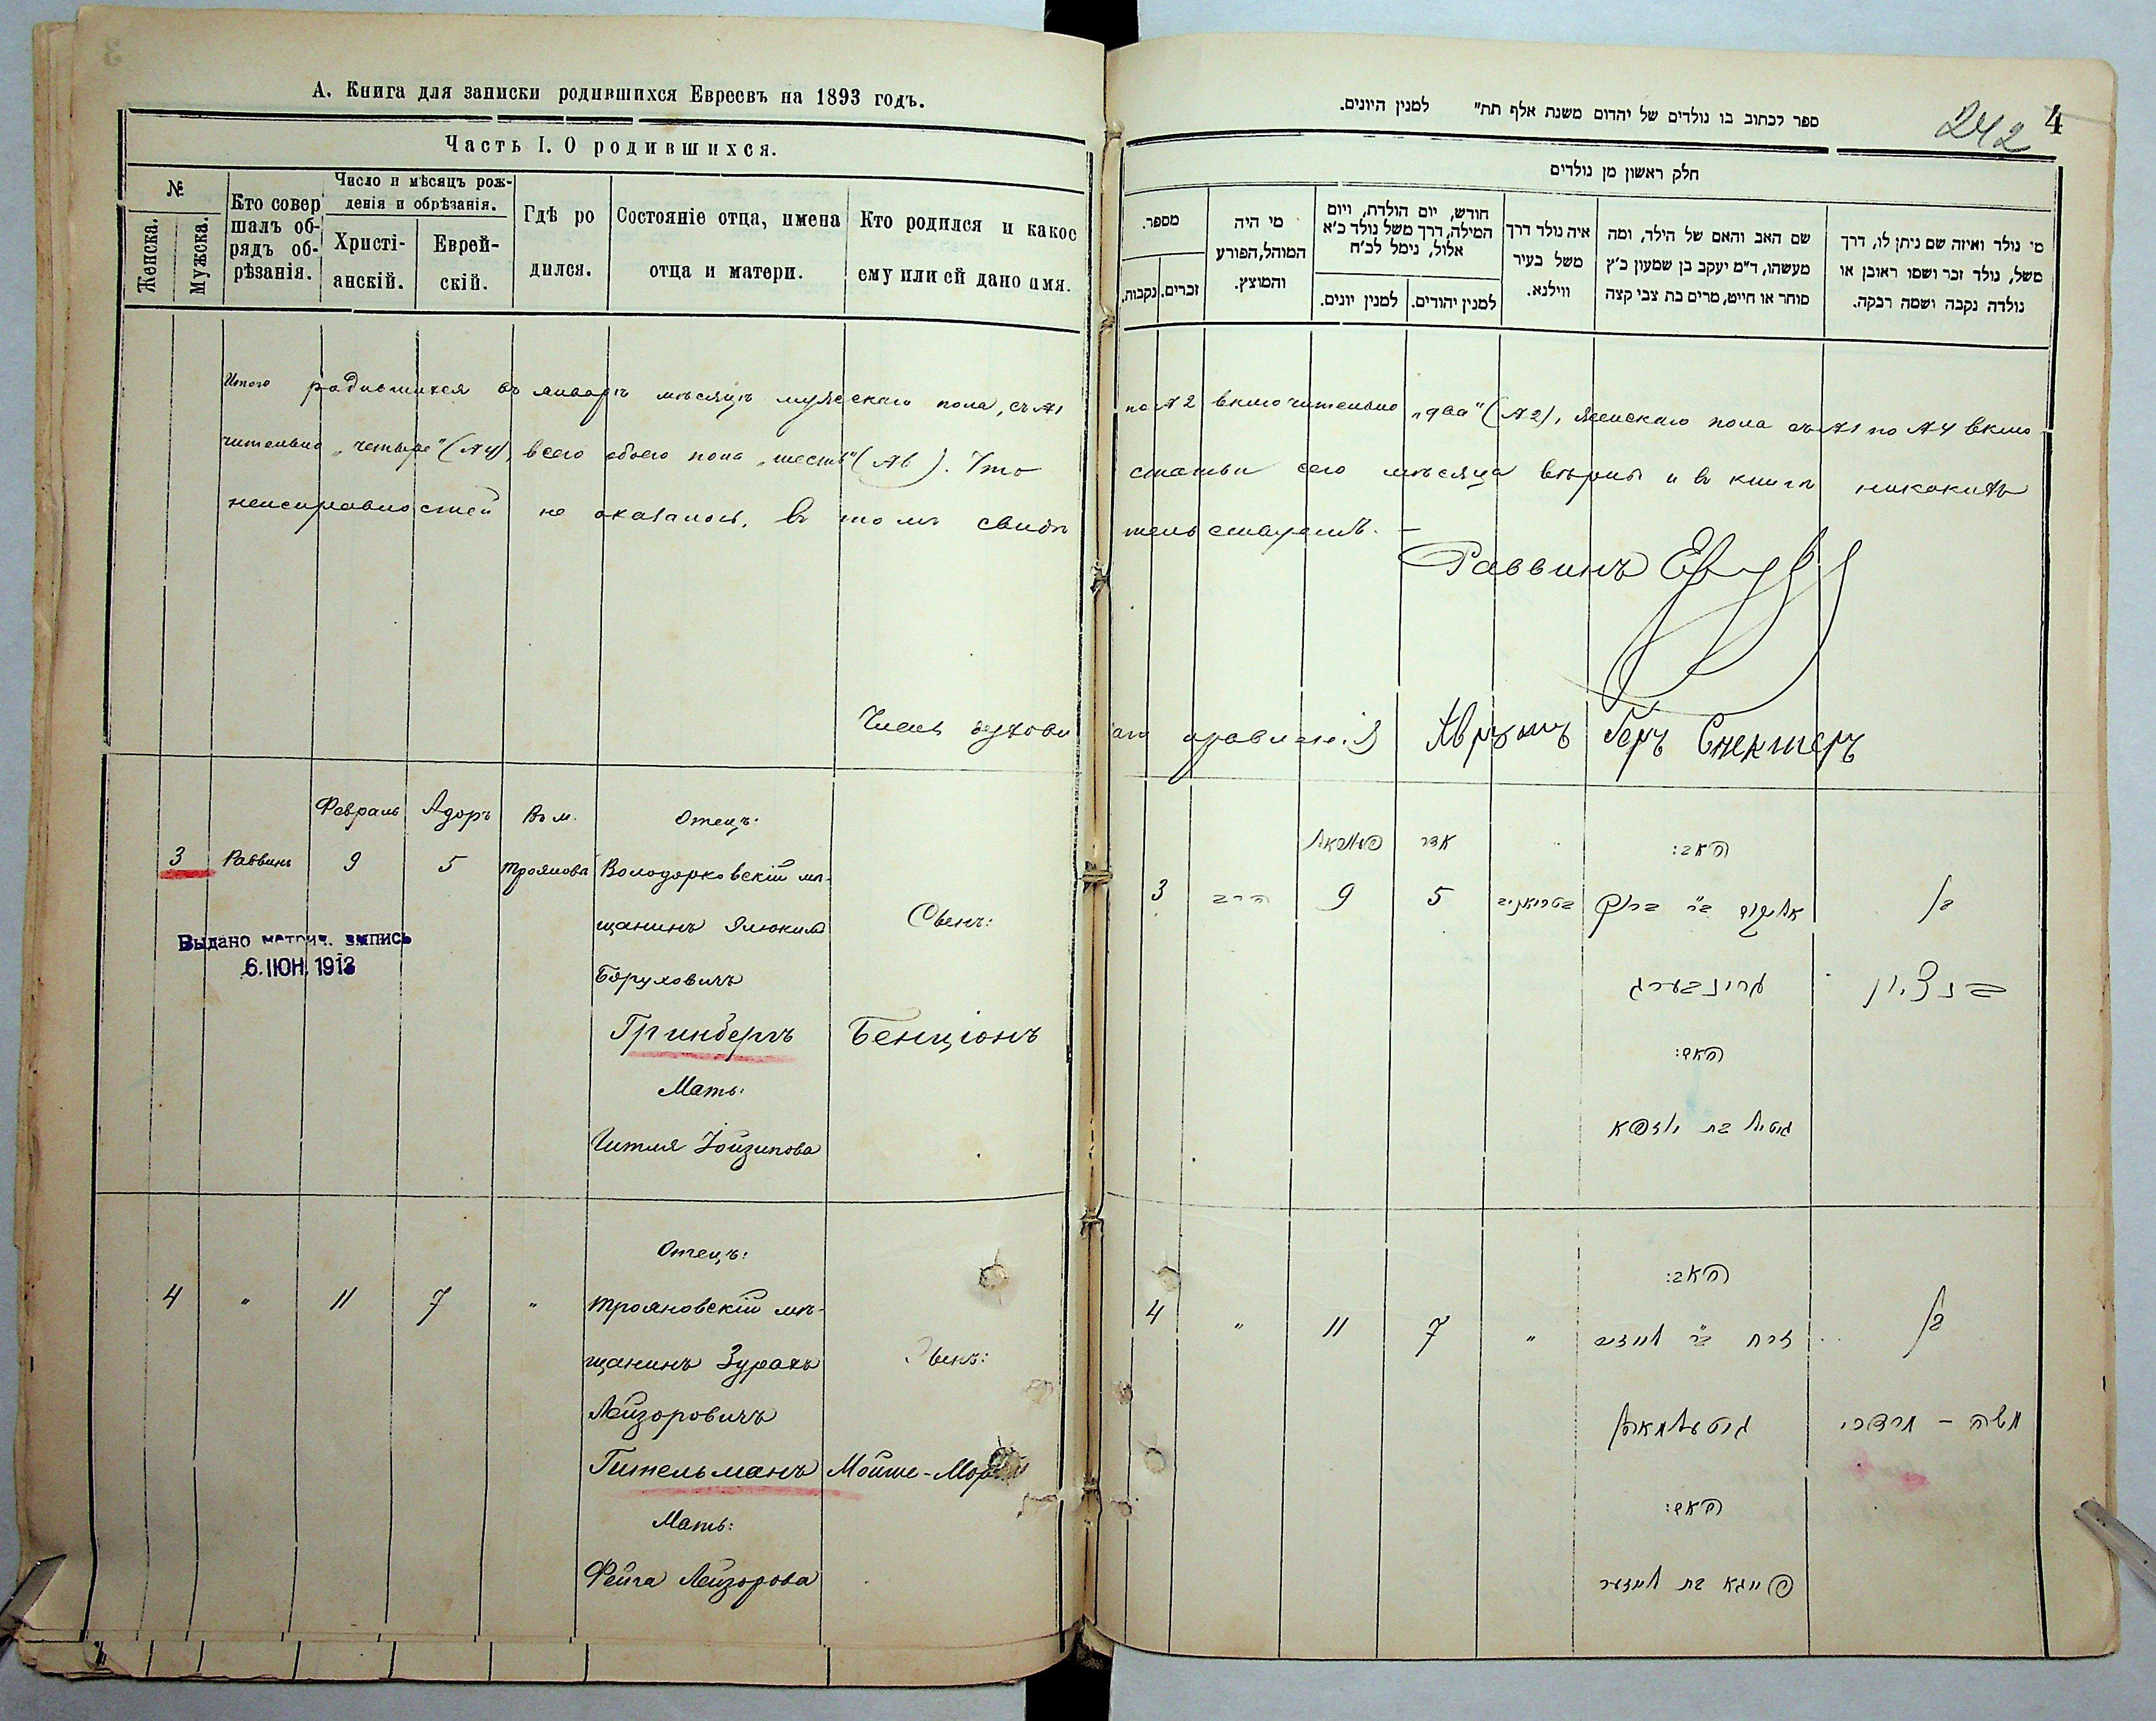 3
А. Книга для записки родившихся Евреевъ на 1893 годъ.
Часть I. О родившихся.
№
Женска.
Мужска.
Кто совер
шалъ об-
рядъ об-
рѣзанія.
Число и мѣсяцъ рож-
денія и обрѣзанія.
Христі-
анскій.
Еврей-
скій.
Гдѣ ро
дился.
Состояніе отца, имена
отца и матери.
Кто родился и какое
ему или ей дано имя.
Итого родившихся въ январѣ мѣсяцѣ мужескаго пола, съ №1
чительно „четыре" (№4), всего обоего пола „шесть" (№6). Что
неисправностей не оказалось, въ томъ свидѣ
Членъ духовн
Февраль Адоръ Въ м. Отецъ:
3 Раввинъ 9 5 Троянова Володарковскій мѣ-
щанинъ Элюкимъ
Сынъ:
Выдано метрич. запись
6. IЮН. 1913
Боруховичъ
Гринбергъ Бенціонъ
Мать:
Гитля Іойзипова
Отецъ:
4 " 11 7 " Трояновскій мѣ-
щанинъ Зурахъ
Сынъ:
Лейзоровичъ
Гительманъ Мойше-Мор
Мать:
Фейга Лейзорова
ספר לכתוב בו נולדים של יהדום משנת אלף תת" למנין היונים.
242
4
חלק ראשון מן נולדים
מספר.
זכרים.
נקבות.
מי היה
המוהל, הפורע
והמוצץ.
חורש, יום הולדת, ויום
המילה, דרך משל נולד כ'א
אלול, נימל לכ'ח
למנין יונים.
למנין יהודים.
איה נולד דרך
משל בעיר
ווילנא.
שם האב והאם של הילד, ומה
מעשהו, ד"מ יעקב בן שמעון כ'ץ
סוחר או חייט, מרים בת צבי קצה
מי נולד ואיזה שם ניתן לו, דרך
משל, נולד זכר ושמו ראובן או
נולדה נקבה ושמה רבקה.
по №2 включительно „два" (№2), женскаго пола съ №1 по №4 вклю
статьи сего мѣсяца вѣрны и въ книгѣ никакихъ
тельствуемъ. –
Раввинъ
аго правленія Аврумъ Беръ Спекторъ
אדר
האב:
3 הרב 9 5 בטריאניב אליקום ב"ר ברוך בן
גרינבערג בנציון
האם:
גיטיל בת יוזפא
האב:
4 " 11 7 " זרח ב"ר לייזער בן
גיטעלמאן משה – מרדכי
האם:
פייגא בת לייזער